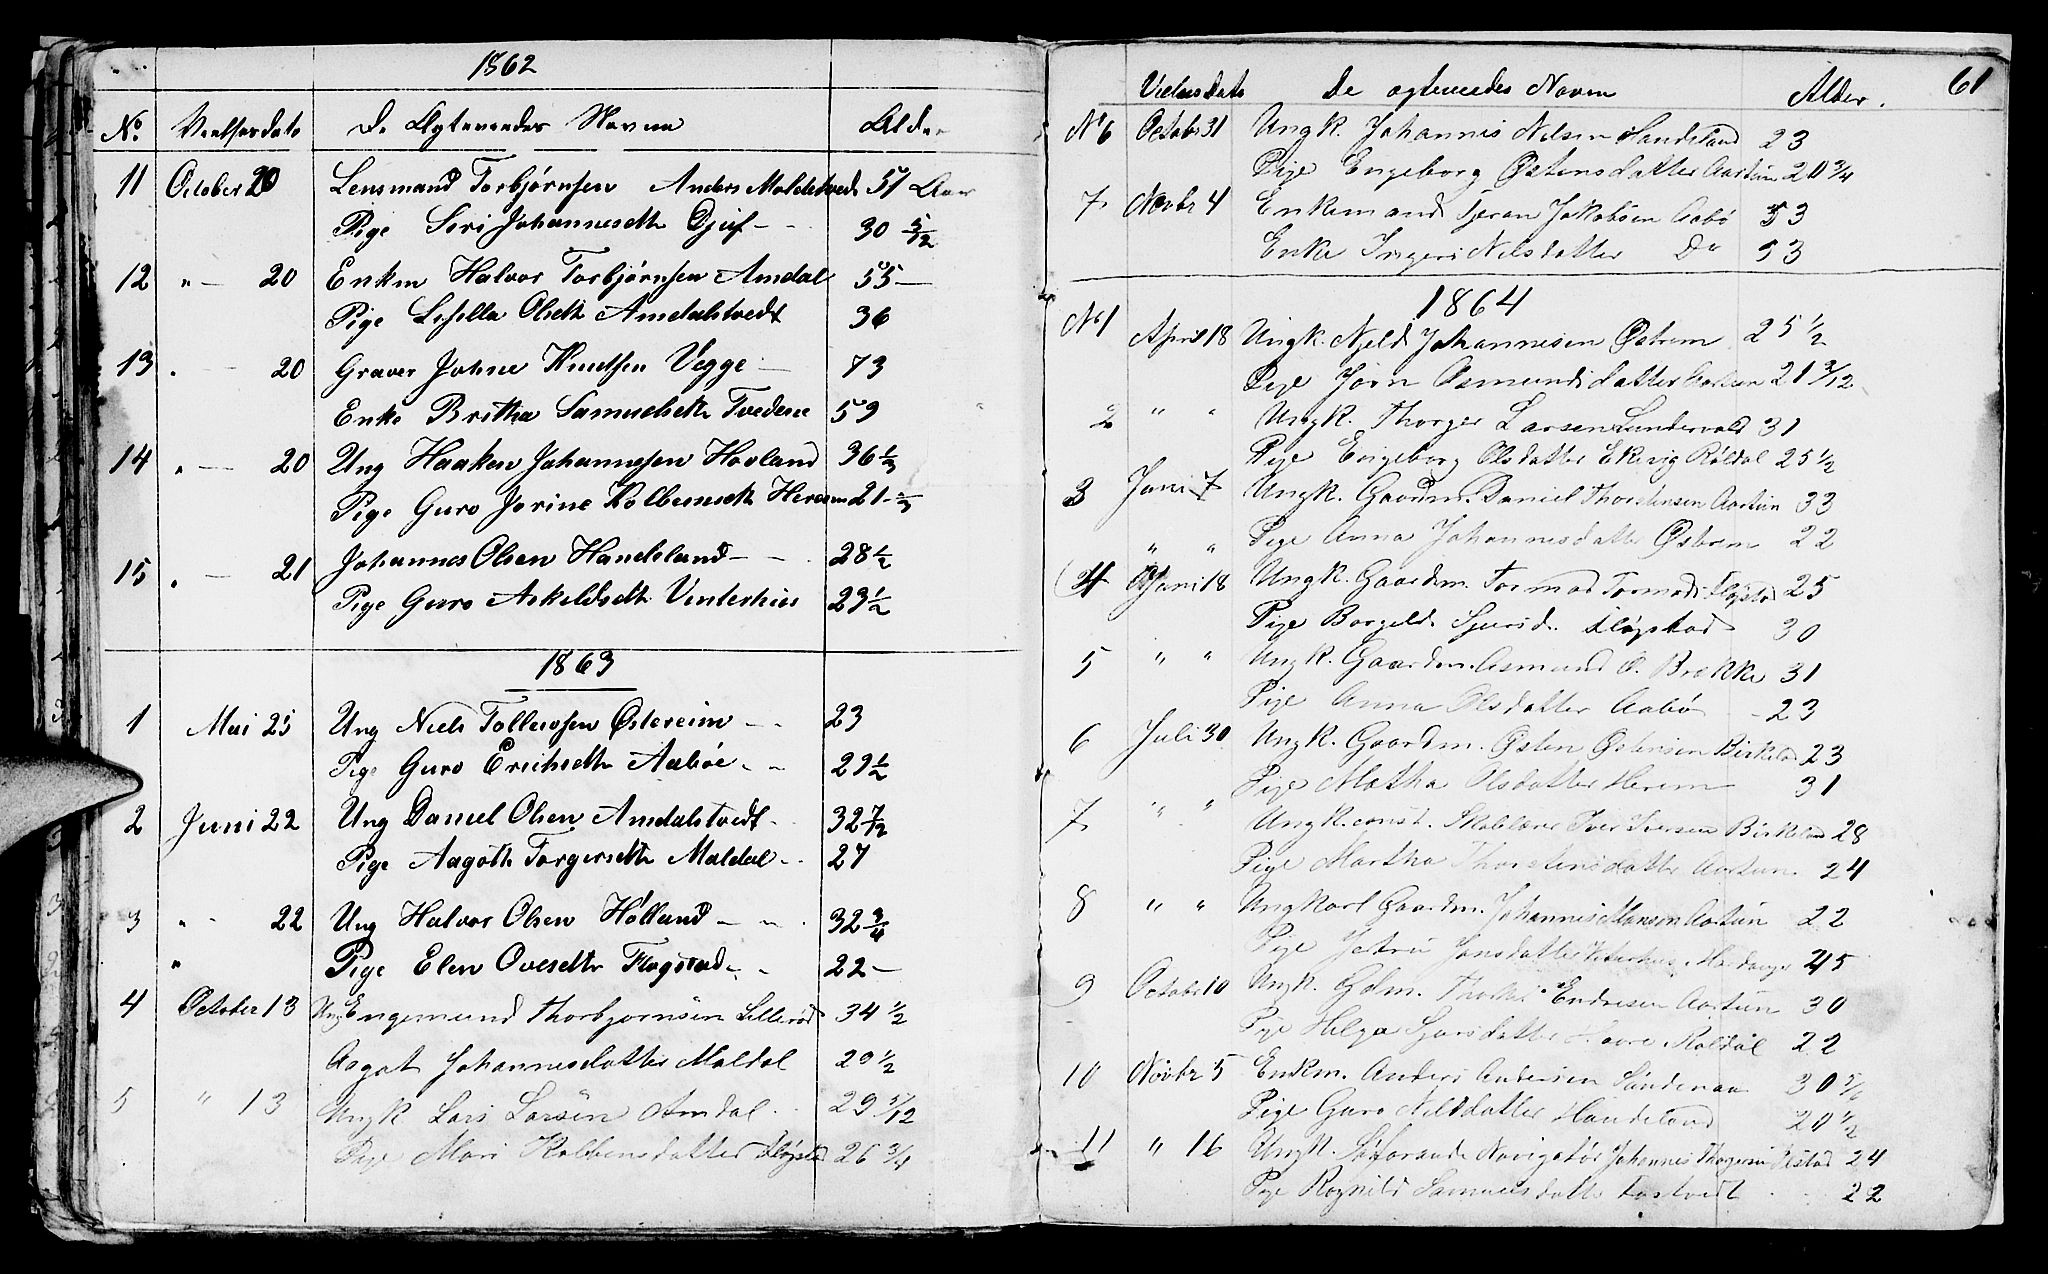 1862
No. Vielsesdato De Ægteviedes Navne Alder
11 October 20 Lensmand Torbjørnsen Anders Maldetved 51 Aar
Pige Siri Johannesdtr Djuf 30 5/12
12 " — 20 Enkm Halvor Torbjørnsen Amdal 55 —
Pige Olsdtr Amdalstvedt 36
13 " — 20 Graver Johne Knudsen Vegge 73
Enke Britha Samuelsdtr Tvedene 59
14 " — 20 Ung Haaken Johannesen Hovland 36 1/2
Pige Guro Jorine Kolbensdtr Hereim 21
15 " — 21 Johannes Olsen Handeland — 28 1/2
Pige Guro Askildsdtr Vinterhuus 23 1/2
1863
1 Mai 25 Ung Niels Tollevsen Østereim 23
Pige Guro Erichsdtr Aaboe 29 1/2
2 Juni 22 Ung Daniel Olsen Amdalstvedt 32 7/12
Pige Aagoth Torgersdtr Maldal 27
3 " 22 Ung Halvor Olsen Hølland 32 3/4
" Pige Elen Ovesdtr Fløgstad 22 —
4 October 13 Ung Engemund Thorbjørnsen 34 1/2
Aagot Johannesdatter Maldal 29 1/2
5 " 13 Ungk Lars Larsen Amdal 29 5/12
Pige Mari Kolbensdatter Fløgstad 26 3/4
61
Vielses Dato De ægteviedes Navn Alder.
No 6 Octobr 31 Ungk. Johannis Nilsen Handeland 23
Pige Engeborg Østensdatter Aartun 20 3/4
7 Novbr 4 Enkemand Tjeran Jakobsen Aabø 53
Enke Ingeri Nilsdatter Do 53
1864
No 1 April 18 Ungk. Njeld Johannesen Østrem 25 1/2
Pige Jørn Osmundsdatter Aartun 21 3/12
2 " " Ungk. Thorger Larsen Sundervald 31
Pige Engeborg Olsdatter Ekevig Røldal 25 1/2
3 Juni 7 Ungk. Gaardm. Daniel Thorstensen Aartun 33
" " Pige Anna Johannesdatter Østrem 22
4 Juni 18 Ungk. Gaardm. Tormod Tormods. Fløgstad 25
Pige Borgeld Sjursd. Fløgstad 30
5 " " Ungk. Gaardm. Osmund O. Brekke 31
Pige Anna Olsdatter Aabø 23
6 Juli 30 Ungk. Gaardm. Østen Østensen Birkeland 23
Pige Martha Olsdatter Hereim 31
7 " " Ungk. const. Skolelærer Iver Iversen Birkeland 28
Pige Martha Thorstensdatter Aartun 24
8 " " Ungkarl Gaardm. Johannis Monsen Aartun 22
Pige Jonsdatter Hardanger 45
9 Octobr 10 Ungk. Gdm. Endresen Aartun 30
Pige Helga Sjursdatter Haare Røldal 22
10 Novbr 5 Enkm. Anders Andersen Sandenaa 30 5/6
Pige Guro Nilsdatter Handeland 20 1/2
11 " 16 Ungk. Søfarende Navigatør Johannes Thorgersen 24
Pige Rognild Samuelsdatter 22